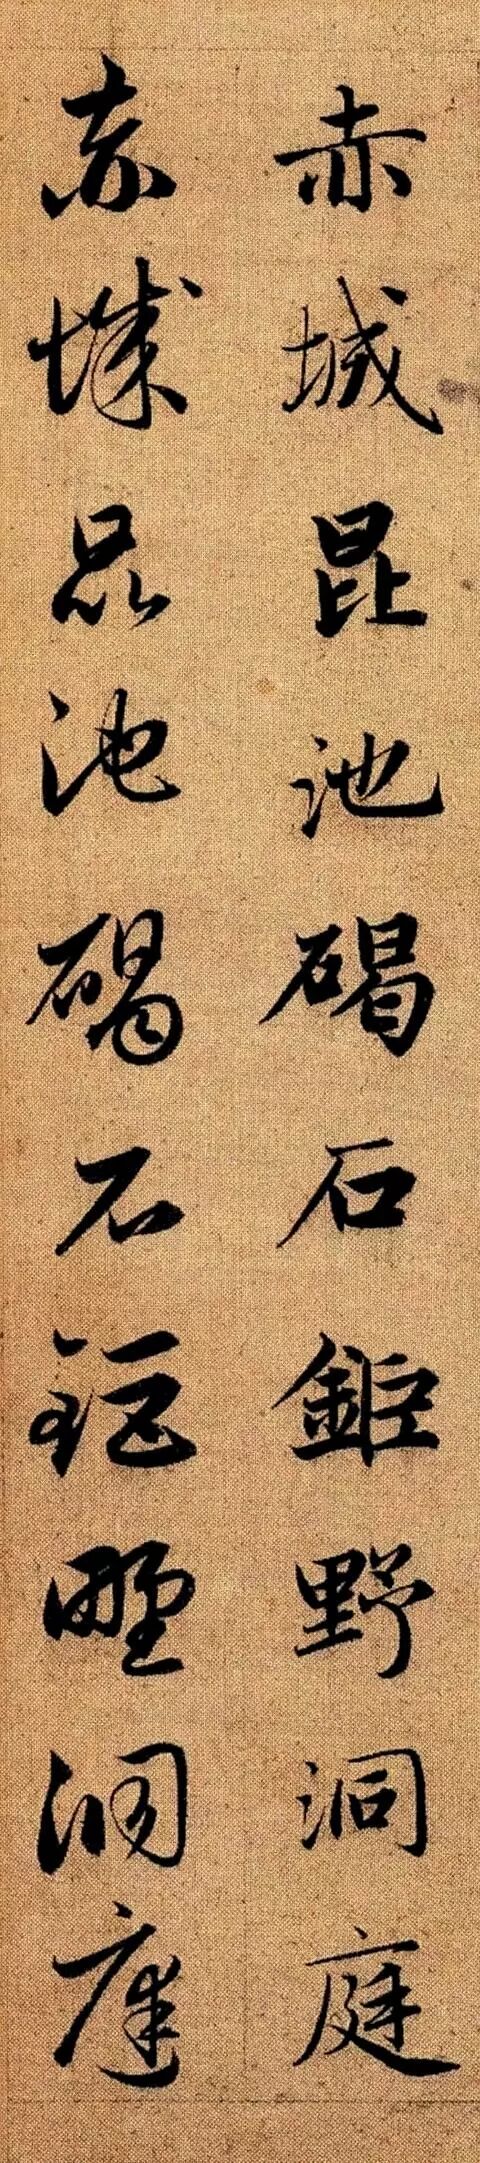 赤城昆池碣石鉅野洞庭
赤城昆池碣石鉅野洞庭